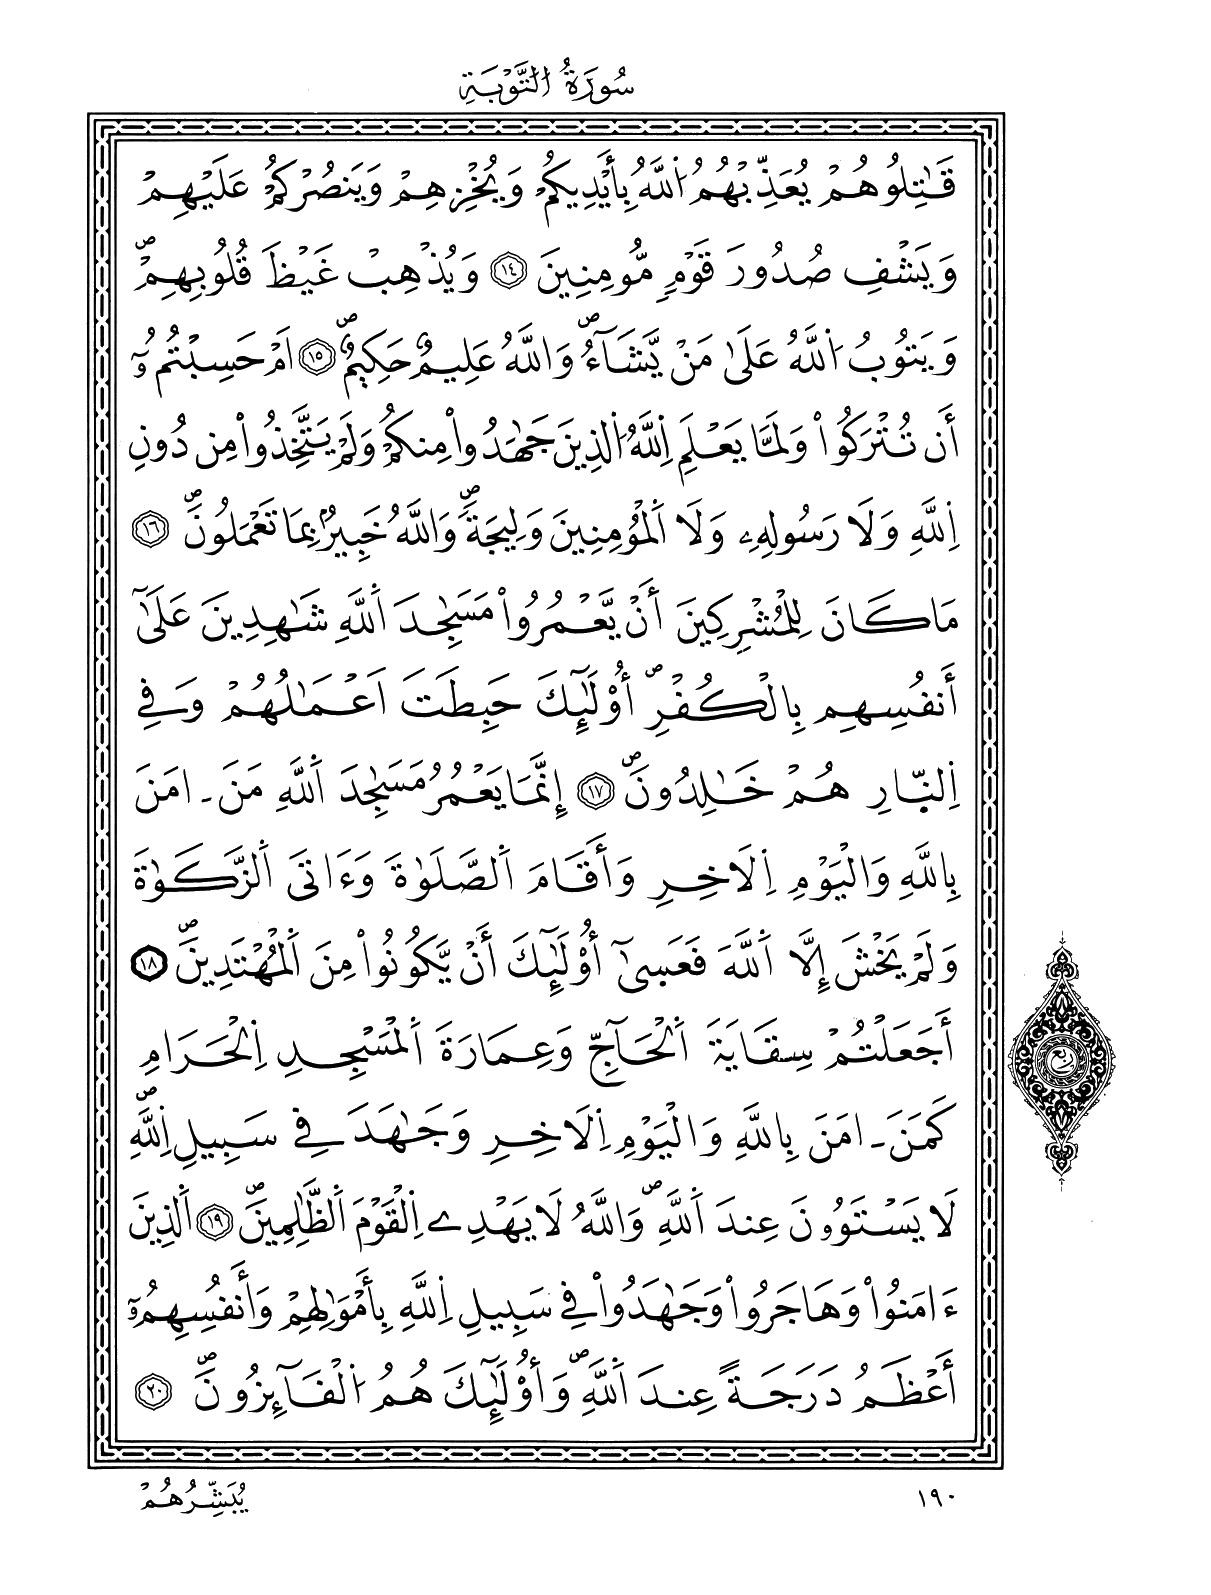 سُورَةُ التَّوْبَةِ
قَٰتِلُوهُمْ يُعَذِّبْهُمُ اللَّهُ بِأَيْدِيكُمْ وَيُخْزِهِمْ وَيَنصُرْكُمْ عَلَيْهِمْ
وَيَشْفِ صُدُورَ قَوْمٍ مُّومِنِينَ ١٤ وَيُذْهِبْ غَيْظَ قُلُوبِهِمْۖ
وَيَتُوبُ اللَّهُ عَلَىٰ مَنْ يَّشَآءُۖ وَاللَّهُ عَلِيمٌ حَكِيمٌۖ ١٥ اَمْ حَسِبْتُمُۥٓ
أَن تُتْرَكُواْ وَلَمَّا يَعْلَمِ اِللَّهُ اُلذِينَ جَٰهَدُواْ مِنكُمْ وَلَمْ يَتَّخِذُواْ مِن دُونِ
اِللَّهِ وَلَا رَسُولِهِۦ وَلَا اَلْمُؤْمِنِينَ وَلِيجَةًۖ وَاللَّهُ خَبِيرٌۢ بِمَا تَعْمَلُونَۖ ١٦
مَا كَانَ لِلْمُشْرِكِينَ أَنْ يَّعْمُرُواْ مَسَٰجِدَ اَللَّهِ شَٰهِدِينَ عَلَىٰٓ
أَنفُسِهِم بِالْكُفْرِۖ أُوْلَٰٓئِكَ حَبِطَتَ اَعْمَٰلُهُمْ وَفِي
اِلنّ۪ارِ هُمْ خَٰلِدُونَۖ ١٧ إِنَّمَا يَعْمُرُ مَسَٰجِدَ اَللَّهِ مَنَ ـ امَنَ
بِاللَّهِ وَالْيَوْمِ اِلَاخِرِ وَأَقَامَ اَلصَّلَوٰةَ وَءَاتَى اَلزَّكَوٰةَ
وَلَمْ يَخْشَ إِلَّا اَللَّهَ فَعَسَىٰٓ أُوْلَٰٓئِكَ أَنْ يَّكُونُواْ مِنَ اَلْمُهْتَدِينَۖ ١٨
أَجَعَلْتُمْ سِقَايَةَ اَلْحَآجِّ وَعِمَارَةَ اَلْمَسْجِدِ اِلْحَرَامِ
كَمَنَ ـ امَنَ بِاللَّهِ وَالْيَوْمِ اِلَاخِرِ وَجَٰهَدَ فِي سَبِيلِ اِللَّهِۖ
لَا يَسْتَوُۥنَ عِندَ اَللَّهِۖ وَاللَّهُ لَا يَهْدِے اِلْقَوْمَ اَلظَّٰلِمِينَۖ ١٩ اَلذِينَ
ءَامَنُواْ وَهَاجَرُواْ وَجَٰهَدُواْ فِي سَبِيلِ اِللَّهِ بِأَمْوَٰلِهِمْ وَأَنفُسِهِمُۥٓ
أَعْظَمُ دَرَجَةً عِندَ اَللَّهِۖ وَأُوْلَٰٓئِكَ هُمُ اُلْفَآئِزُونَۖ ٢٠
ربع
١٩٠
يُبَشِّرُهُمْ